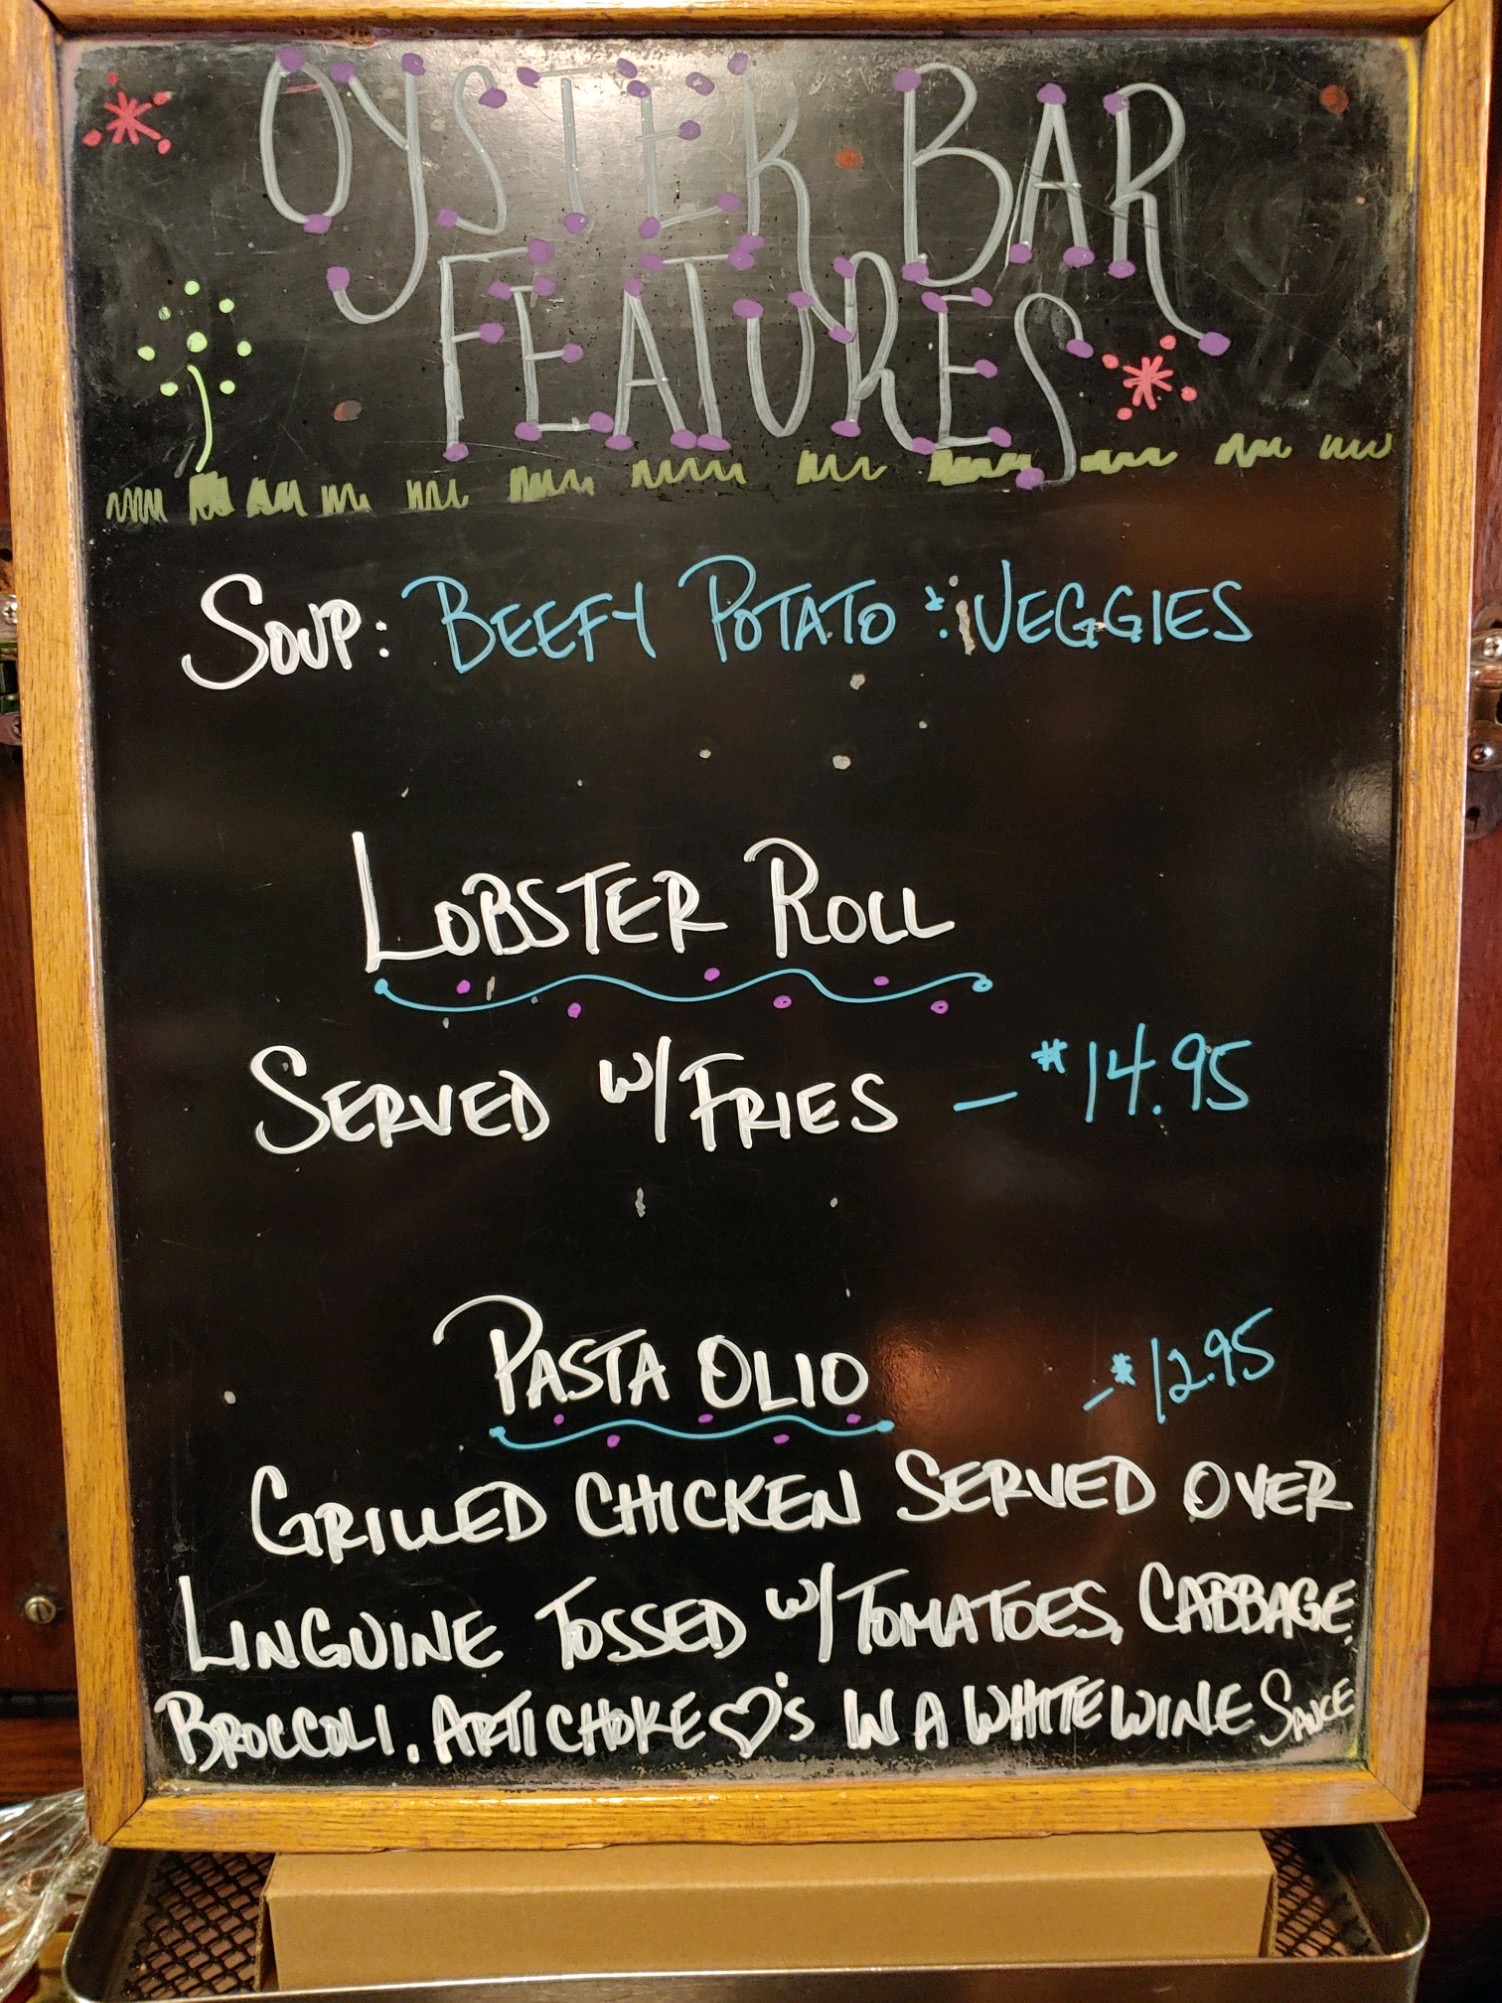 OYSTER BAR
FEATURES
SOUP: BEEFY POTATO & VEGGIES
LOBSTER ROLL
SERVED W/ FRIES - $14.95
PASTA OLIO - $12.95
GRILLED CHICKEN SERVED OVER
LINGUINE TOSSED W/ TOMATOES, CABBAGE,
BROCCOLI, ARTICHOKE ♡'S IN A WHITE WINE SAUCE